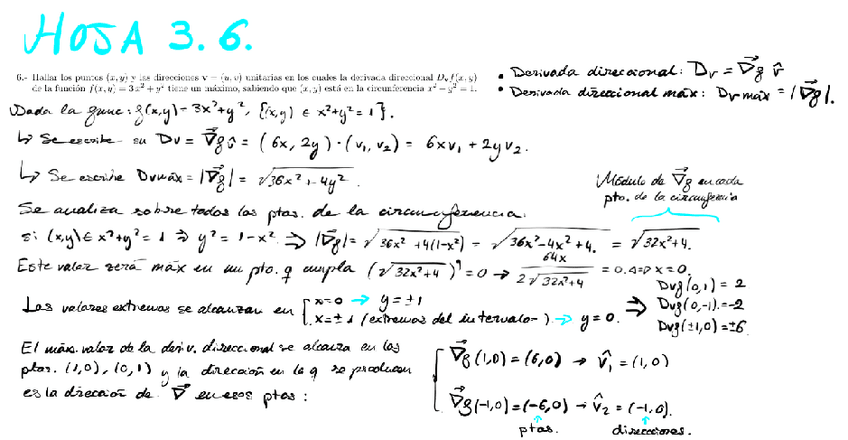 HOJA 3.6.
6.- Hallar los puntos (x, y) y las direcciones v = (u, v) unitarias en los cuales la derivada direccional D_v f(x, y)
de la función f(x, y) = 3x² + y² tiene un máximo, sabiendo que (x, y) está en la circunferencia x² + y² = 1.
• Derivada direccional: Dv = ∇g v̂
• Derivada direccional máx: Dv máx = |∇g|.
Dada la func: g(x,y) = 3x²+y², {(x,y) ∈ x²+y² = 1}.
↳ Se escribe su Dv = ∇g v̂ = (6x, 2y)·(v₁, v₂) = 6xv₁ + 2yv₂.
↳ Se escribe Dvmáx = |∇g| = √36x² + 4y².
Módulo de ∇g en cada
pto. de la circunferencia
Se analiza sobre todos los ptos. de la circunferencia.
si (x,y) ∈ x²+y² = 1 ⇒ y² = 1-x² ⇒ |∇g| = √36x² + 4(1-x²) = √36x²-4x²+4. = √32x²+4.
Este valor será máx en un pto. q cumpla (√32x²+4)' = 0 → 64x / 2√32x²+4 = 0. ⇒ x = 0.
Los valores extremos se alcanzan en [x=0 → y = ±1
x = ±1 (extremos del intervalo) → y = 0.
⇒ Dvg(0,1) = 2
Dvg(0,-1) = -2
Dvg(±1,0) = ±6
El máx. valor de la deriv. direccional se alcanza en los
ptos. (1,0), (0,1) y la dirección en la q se producen
es la dirección de ∇ en esos ptos:
∇g(1,0) = (6,0) → v̂₁ = (1,0)
∇g(-1,0) = (-6,0) → v̂₂ = (-1,0).
ptos. direcciones.